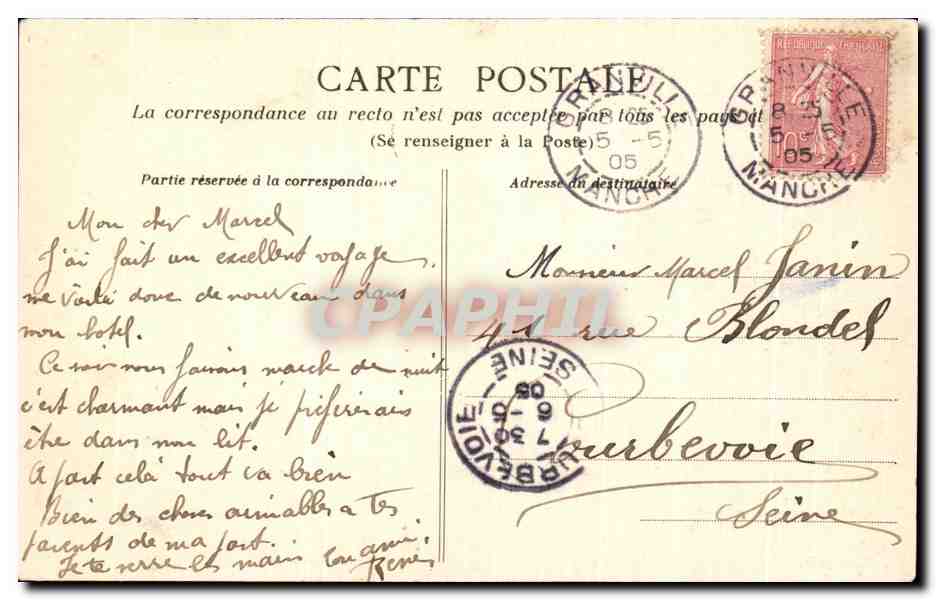 CARTE POSTALE
La correspondance au recto n'est pas acceptée par tous les pays et
(Se renseigner à la Poste)
Partie réservée à la correspondance
Adresse du destinataire
REPUBLIQUE FRANÇAISE
10c
GRANVILLE
8 25
5 -5
05
MANCHE
GRANVILLE
8 25
5 -5
05
MANCHE
Mon cher Marcel
J'ai fait un excellent voyage,
me voilà donc de nouveau dans
mon hotel.
Ce soir nous faisons marche de nuit
c'est charmant mais je préférerais
être dans mon lit.
A part celà tout va bien
Bien des choses aimables a tes
parents de ma part.
Je te serre les mains ton ami,
René
Monsieur Marcel Janin
41 rue Blondel
Courbevoie
Seine
COURBEVOIE
SEINE
7
6 -5
05
CPAPHIL